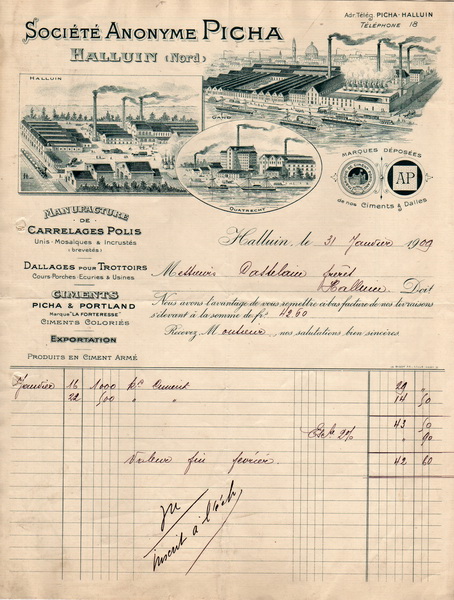 Adr. Télég. PICHA-HALLUIN
TÉLÉPHONE 18
SOCIÉTÉ ANONYME PICHA
HALLUIN (NORD)
HALLUIN
GAND
QUATRECHT
MARQUES DÉPOSÉES
AP
de nos Ciments & Dalles
MANUFACTURE
DE
CARRELAGES POLIS
Unis-Mosaïques & Incrustés
(brevetés)
DALLAGES POUR TROTTOIRS
Cours-Porches-Ecuries & Usines
CIMENTS
PICHA & PORTLAND
Marque "LA FORTERESSE"
CIMENTS COLORIÉS
EXPORTATION
PRODUITS EN CIMENT ARMÉ
Halluin, le 31 Janvier 1909
Messieurs Dastelain
Halluin Doit
Nous avons l'avantage de vous remettre ci-bas facture de nos livraisons
s'élevant à la somme de frs 42.60
Recevez, M onsieur, nos salutations bien sincères.
Janvier 16 1000 ks Ciment 29 "
22 500 " " 14 50
43 50
Esc. 2% " 90
Valeur fin février. 42 60
Vu
inscrit à